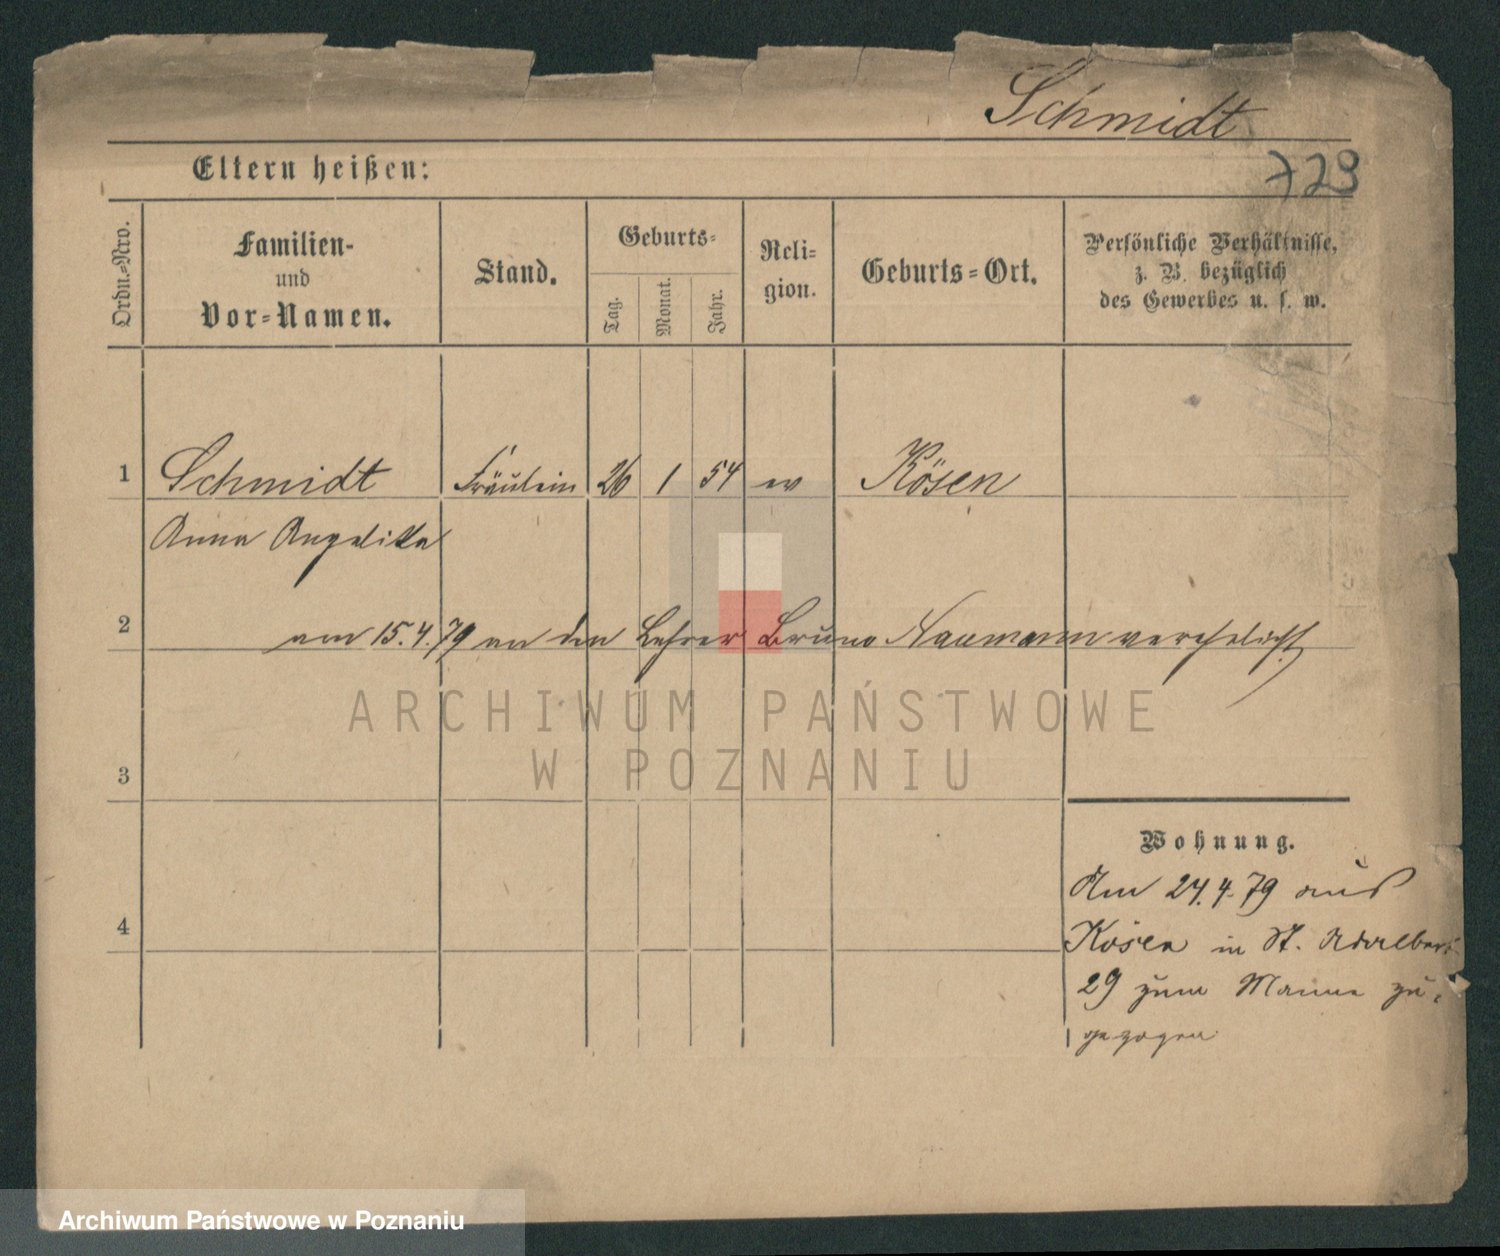 Schmidt
Eltern heißen:
729
Ordn.-Nro.
Familien-
und
Vor-Namen.
Stand.
Geburts-
Tag.
Monat.
Jahr.
Reli-
gion.
Geburts-Ort.
Persönliche Verhältnisse,
z. B. bezüglich
des Gewerbes u. s. w.
1 Schmidt Fräulein 26 1 54 ev Kösen
Anna Angelika
2 am 15.4.79 an den Lehrer Bruno Naumann verehelicht
ARCHIWUM PAŃSTWOWE
W POZNANIU
3
Wohnung.
Am 24.4.79 aus
4
Kösen in St. Adalbert
29 zum Manne zu-
gezogen
Archiwum Państwowe w Poznaniu